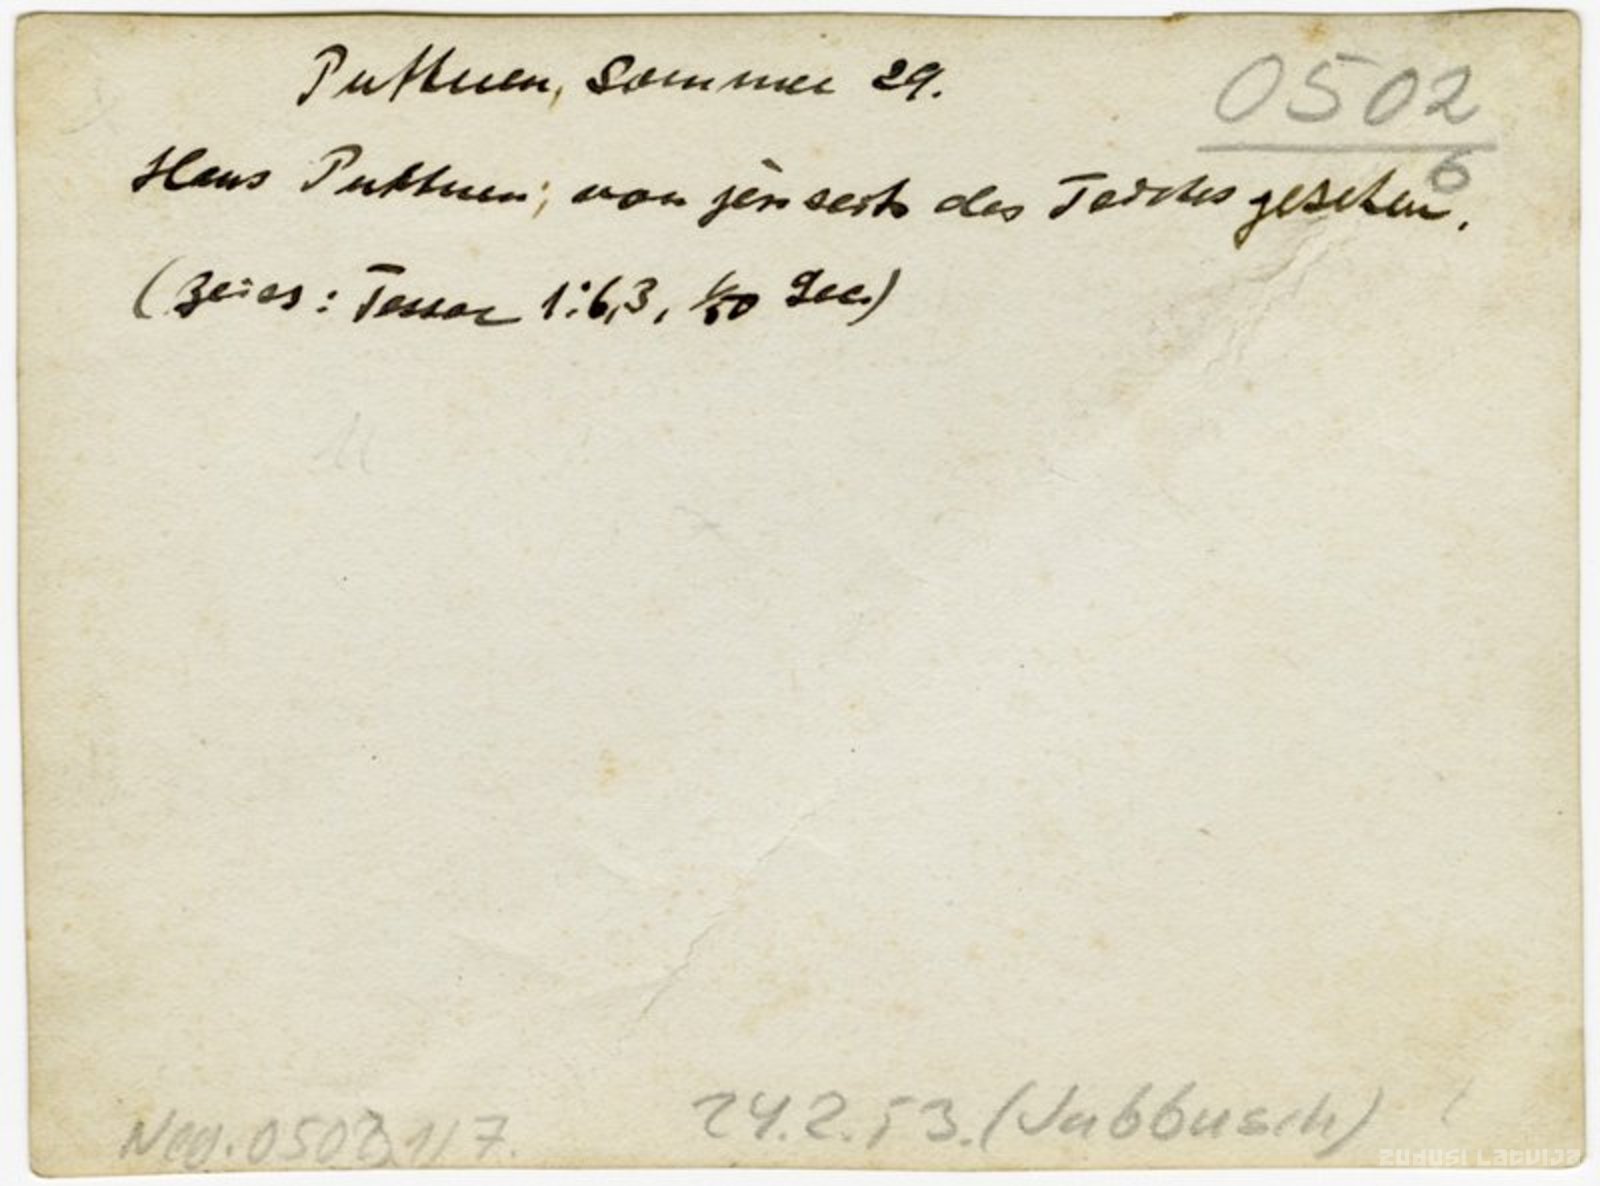 Puttnen, Sommer 29.
0502
6
Haus Puttnen, von jenseits des Teiches gesehen.
(Zeiss: Tessar 1:6,3, 1/50 Sec.)
24.2.53. (Jabbusch)
Neg. 0503,1/7.
ZUDUSI LATVIJA